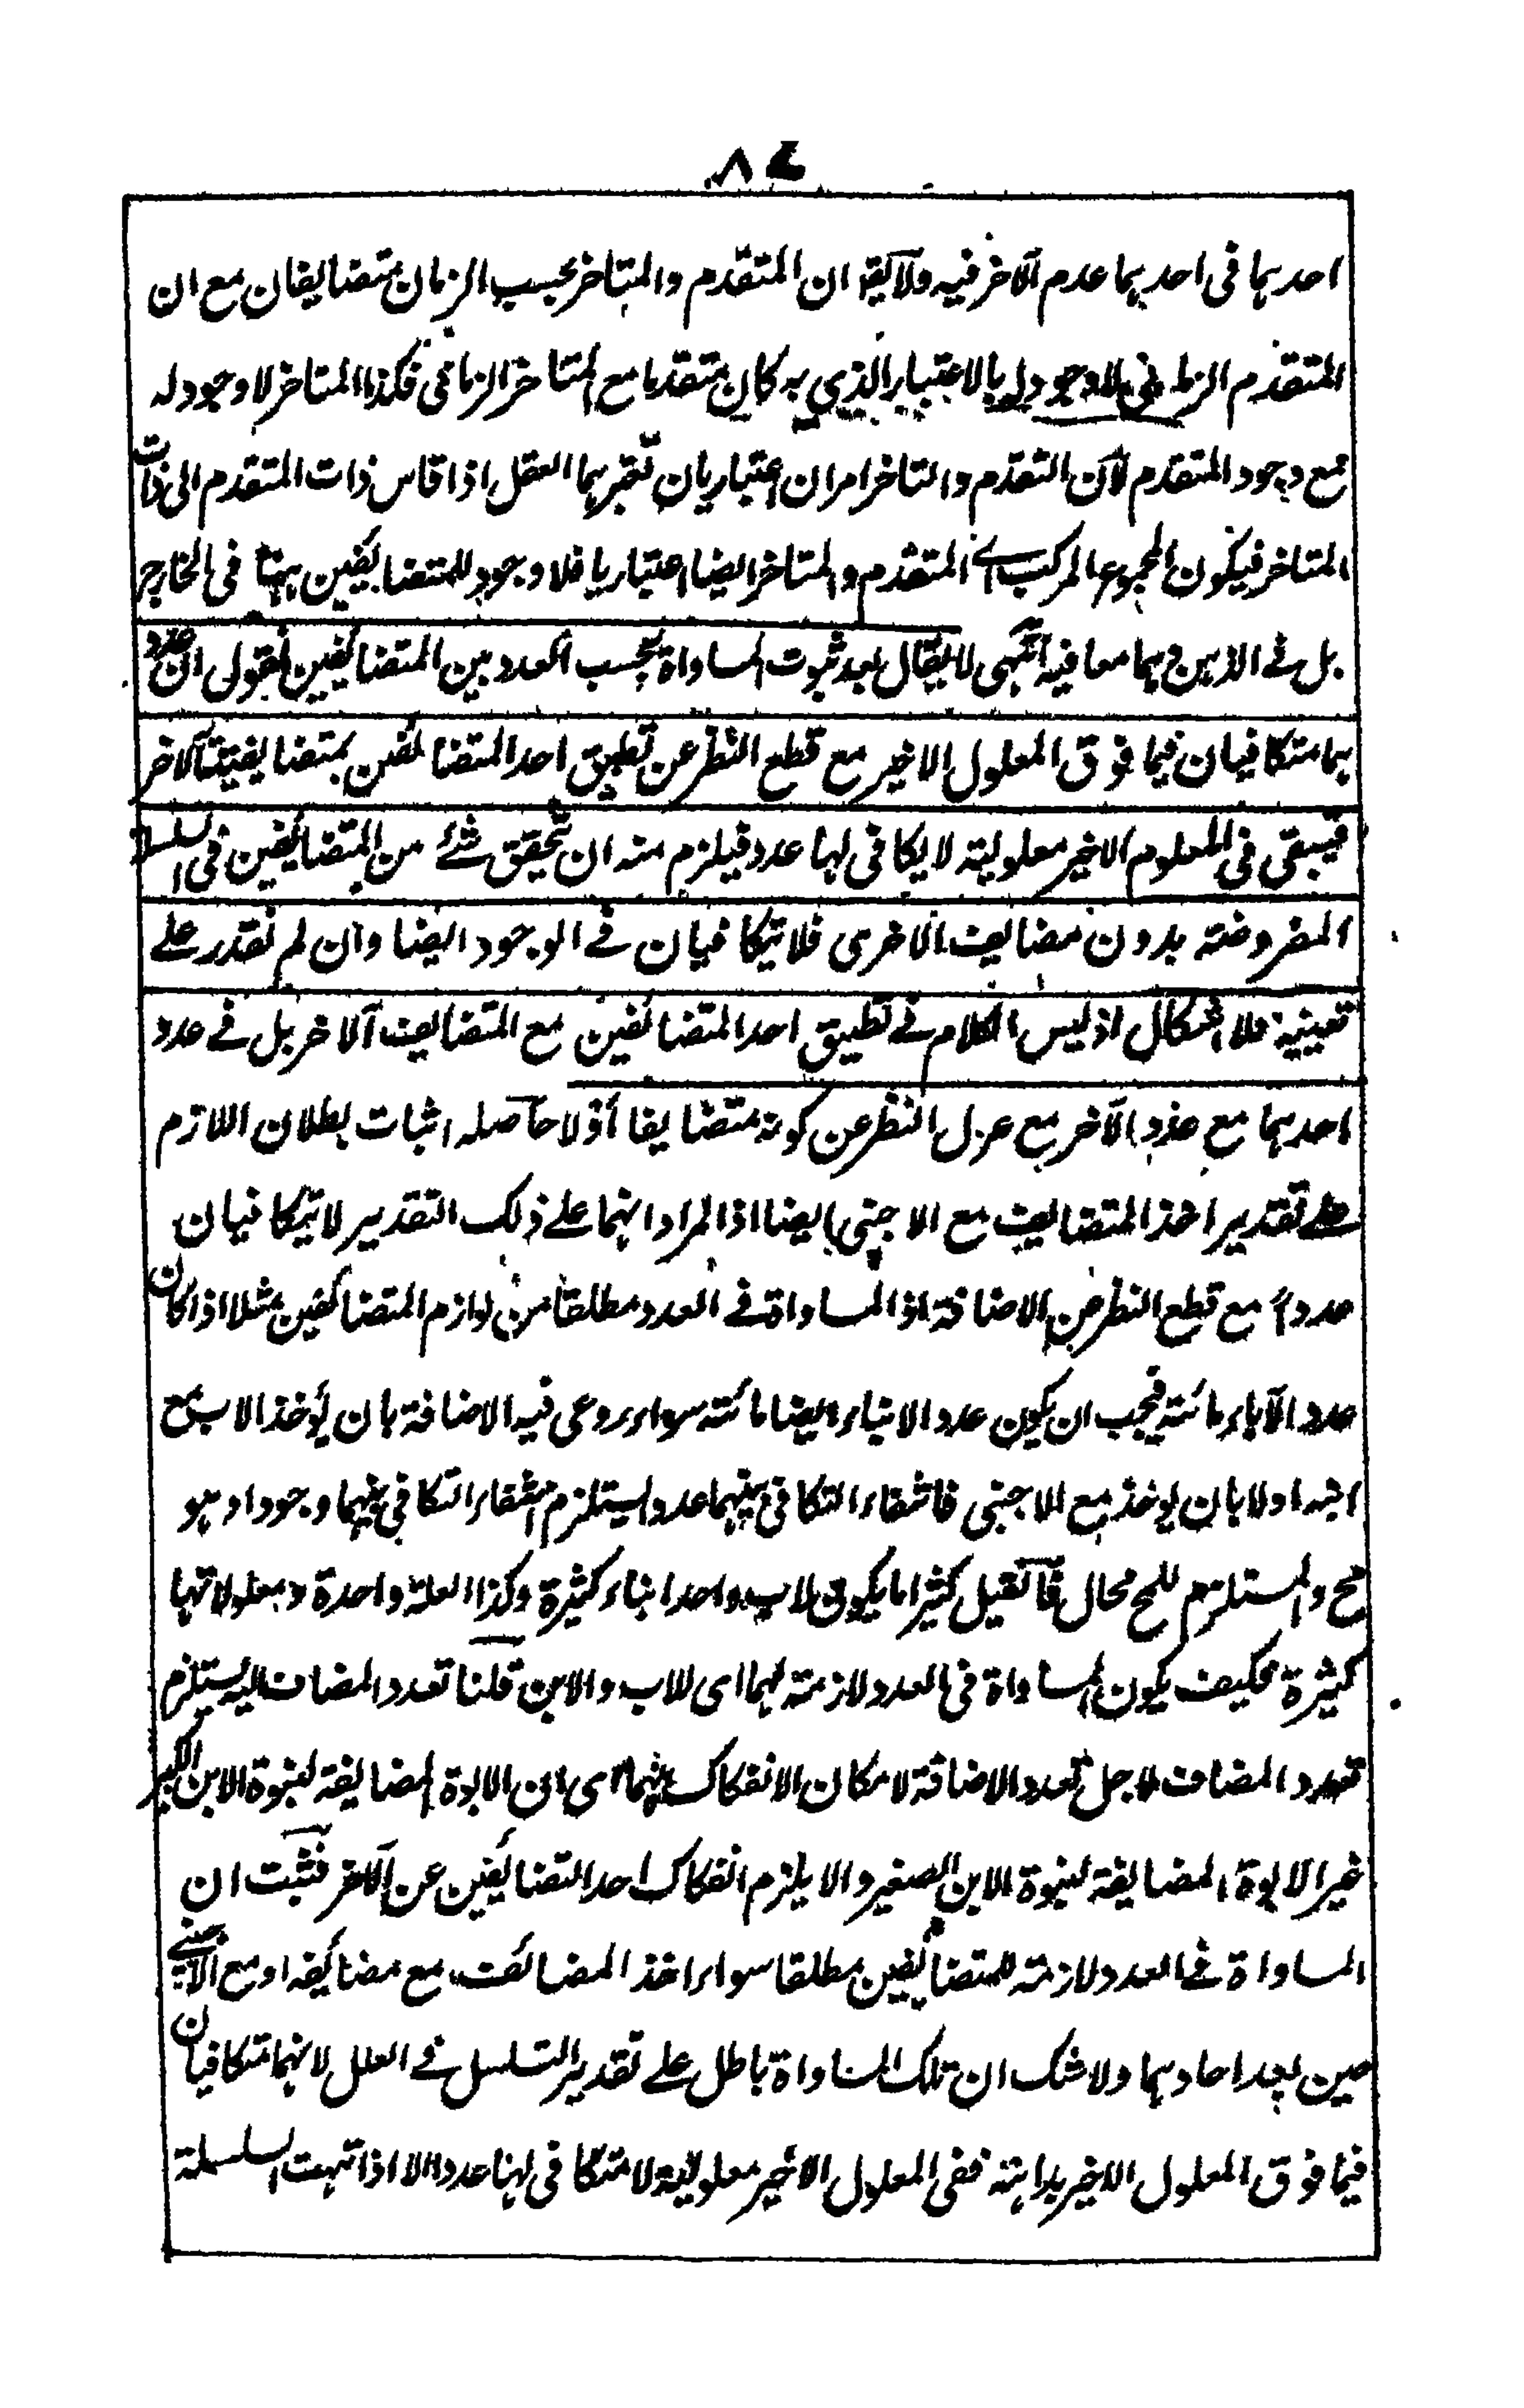 ٨٤
احدہما فی احدہما عدم الآخر فیہ ولا یقہ ان المتقدم والمتاخر بحسب الزمان متضایفان مع ان
المتقدم الزمانی لا وجود لہ بالاعتبار الذی بہ کان متقدما مع المتاخر الزمانی فکذا المتاخر لا وجود لہ
مع وجود المتقدم لان التقدم والتاخر امران اعتباریان یعتبرہما العقل اذا قاس ذات المتقدم الی ذات
المتاخر فیکون المجموع المرکب اے المتقدم والمتاخر ایضا اعتباریا فلا وجود للمتضایفین ہہنا فی الخارج
بل فے الذہن وہما معا فیہ انتہی لا یقال بعد ثبوت المساواۃ بحسب العدد بین المتضایفین نقولی ان عدد
ہما متکافیان فیما فوق المعلول الاخیر مع قطع النظر عن تطبیق احد المتضائفین بمتضایفیۃ الآخر
فیبقی فی المعلوم الاخیر معلولیۃ لا یکافی لہا عدد فیلزم منہ ان تحقق شئے من المتضایفین فی السلسلۃ
المفروضتہ بدون مضایف الاخری فلا یتکافیان فے الوجود ایضا وان لم نقدر علے
تعیینیہ فلا اشکال اذ لیس الکلام فے تطبیق احد المتضائفین مع المتضایف الآخر بل فے عدد
احدہما مع عدد الآخر مع عزل النظر عن کونہ متضایفا أو لا حاصلہ اثبات بطلان اللازم
علے تقدیر اخذ المتضایف مع الاجنبی ایضا اذ المراد انہما علے ذلک التقدیر لا یتکافیان
عدداً مع قطع النظر عن الاضافۃ اذ المساواۃ فے العدد مطلقا من لوازم المتضائفین مثلا اذا کان
عدد الآباء مائتہ فیجب ان یکون عدد الابناء ایضا مائتہ سواء روعی فیہ الاضافۃ بان یؤخذ الاب مع
ابنہ اولا بان یوخذ مع الاجنبی فانتفاء التکافی بینہما عددا یستلزم انتفاء التکافی بینہما وجودا وہو
مح والمستلزم للمح محال فان قیل کثیرا ما یکون لاب واحد ابناء کثیرۃ وکذا العلۃ واحدۃ ومعلولاتہا
کثیرۃ فکیف یکون المساواۃ فی العدد لازمتہ لہما ای للاب والابن قلنا تعدد المضاف الیہ یستلزم
تعدد المضاف لاجل تعدد الاضافۃ لامکان الانفکاک بینہما ای ان الابوۃ المضایفۃ لبنوۃ الابن الکبیر
غیر الابوۃ المضایفۃ لبنوۃ الابن الصغیر والا یلزم انفکاک احد المتضایفین عن الآخر فثبت ان
المساواۃ فے العدد لازمتہ للمتضایفین مطلقا سواء اخذ المضائف مع مضائفہ او مع الاجنبے
حین یعد احادہما ولا شک ان تلک المساواۃ باطل علے تقدیر التسلسل فے العلل لانہما متکافیان
فیما فوق المعلول الاخیر بداہتہ ففی المعلول الاخیر معلولیۃ لا متکافی لہا عددا الا اذا انتہت السلسلۃ